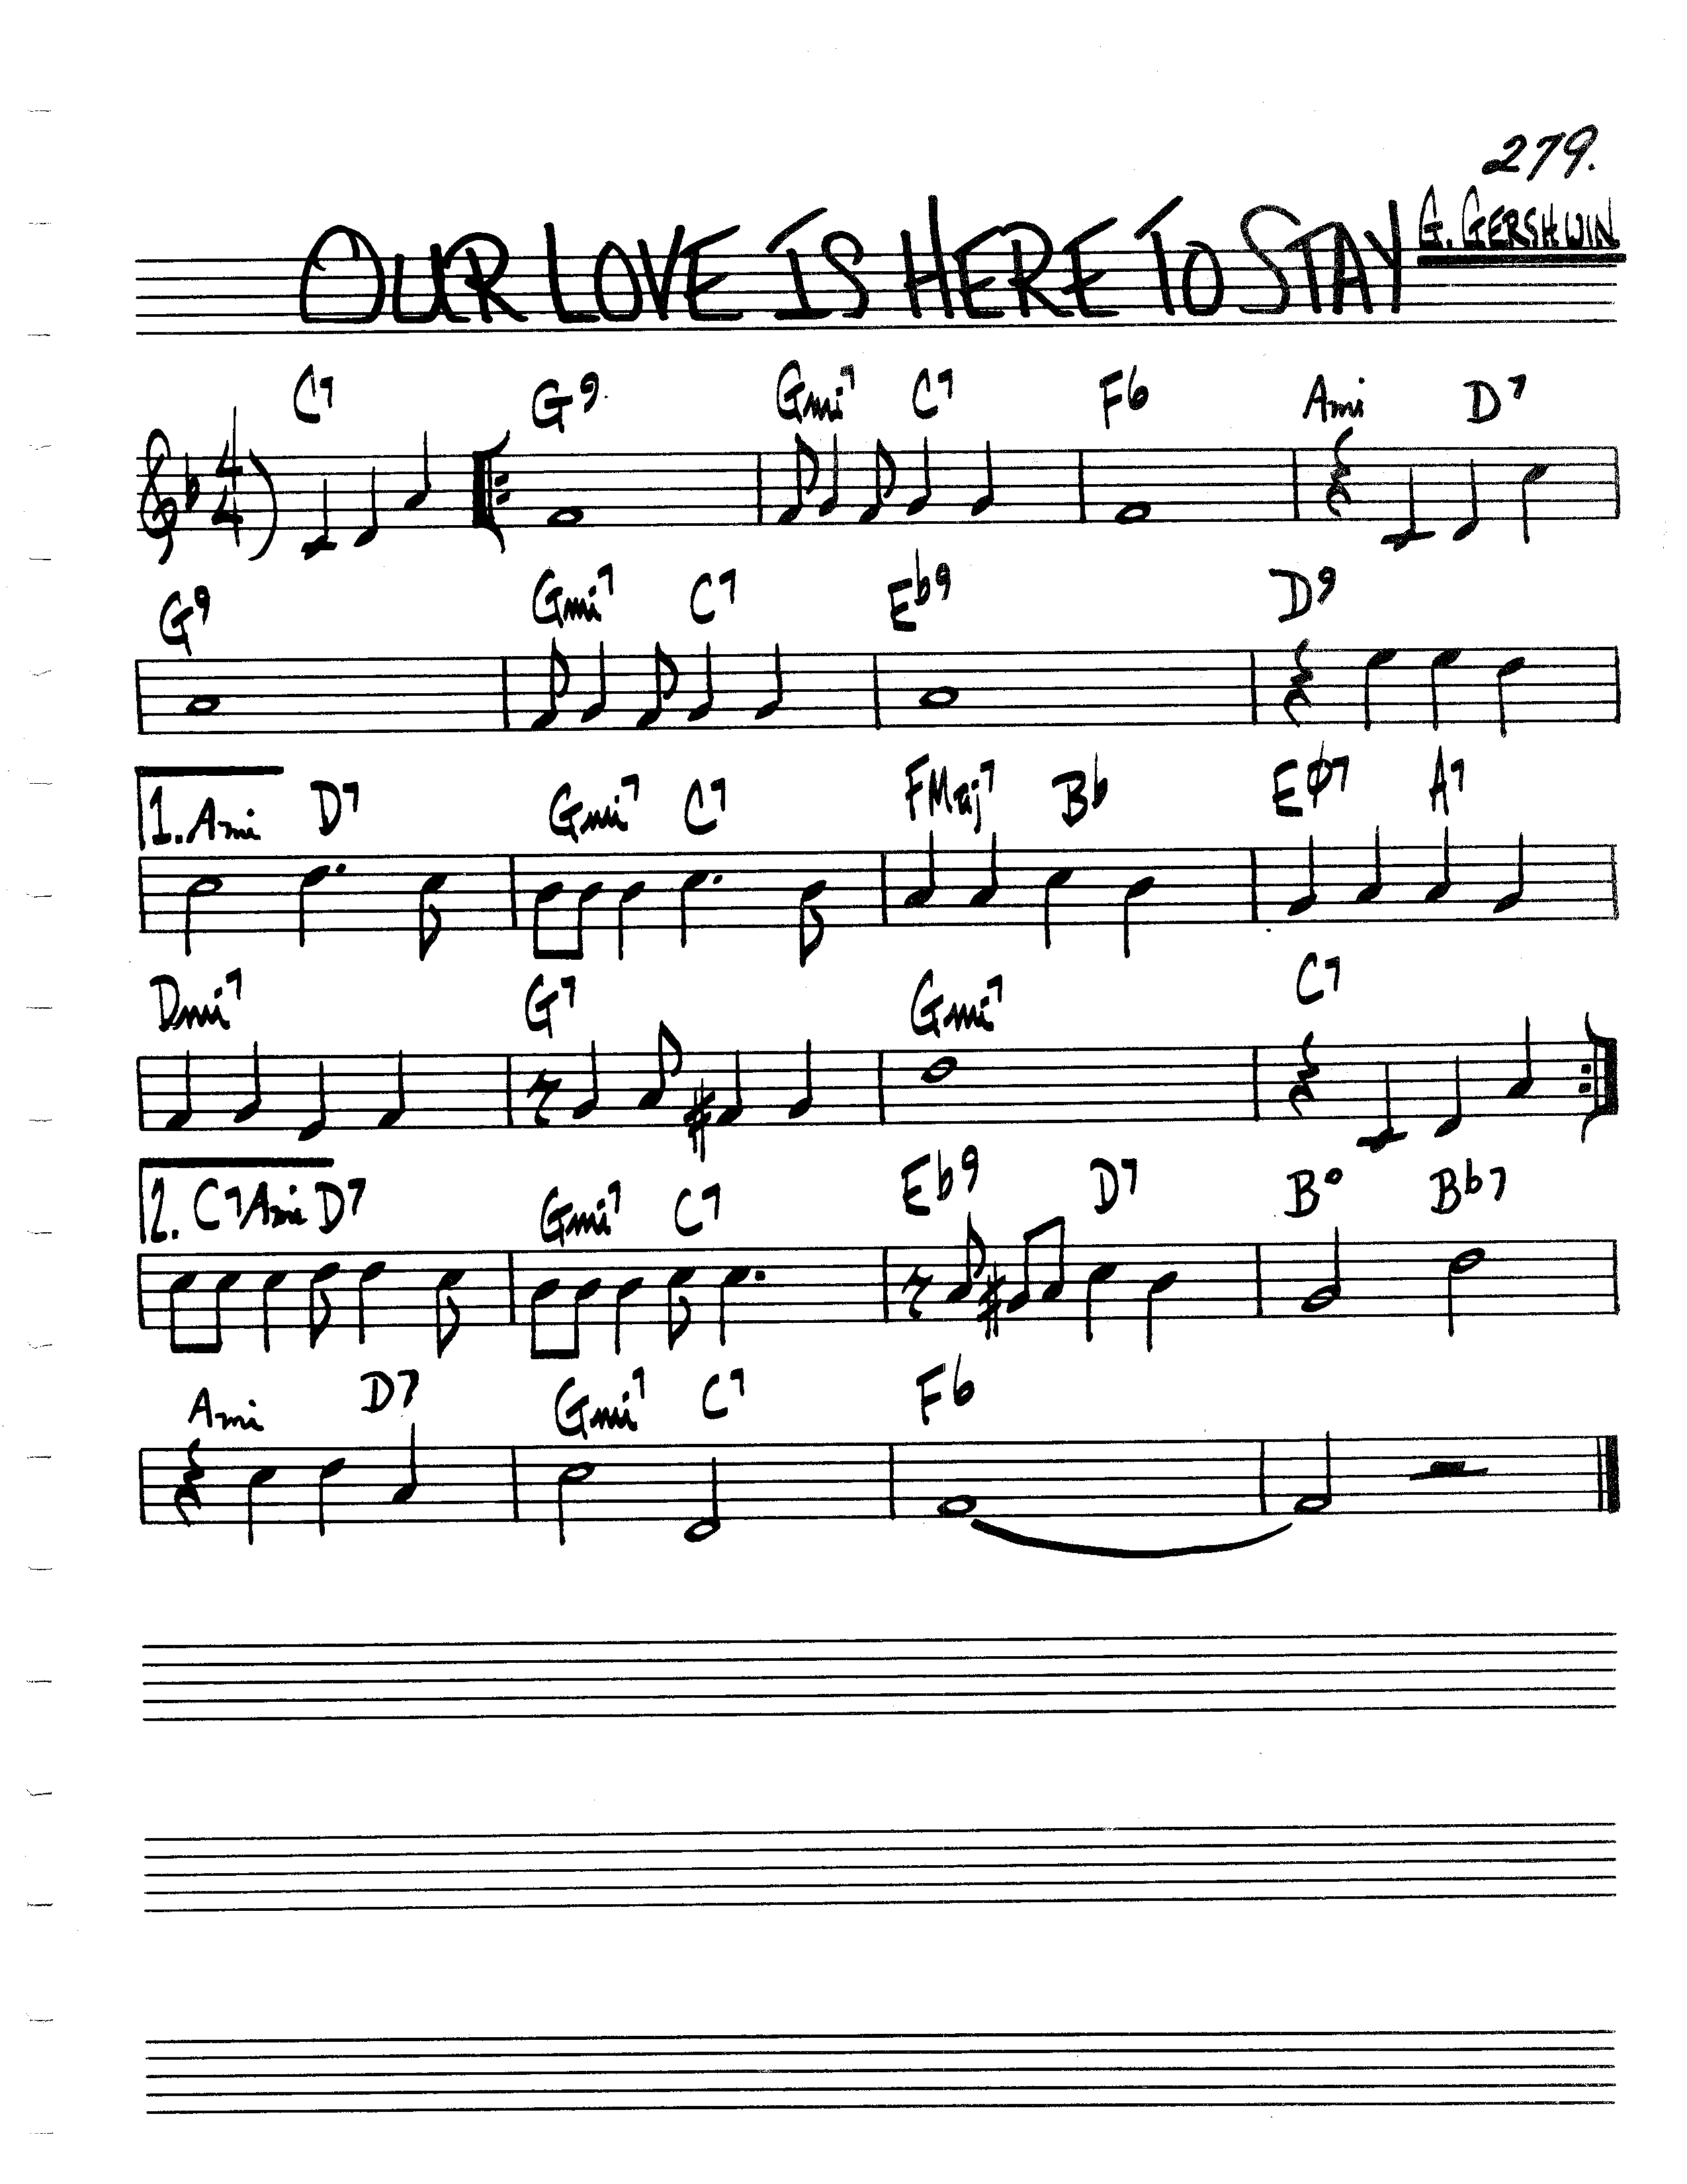 279.
OUR LOVE IS HERE TO STAY G. GERSHWIN
C7 G9. Gmi7 C7 F6 Ami D7
4
4
G9 Gmi7 C7 Eb9 D9
1. Ami D7 Gmi7 C7 FMaj7 Bb EØ7 A7
Dmi7 G7 Gmi7 C7
2. C7 Ami D7 Gmi7 C7 Eb9 D7 B° Bb7
Ami D7 Gmi7 C7 F6